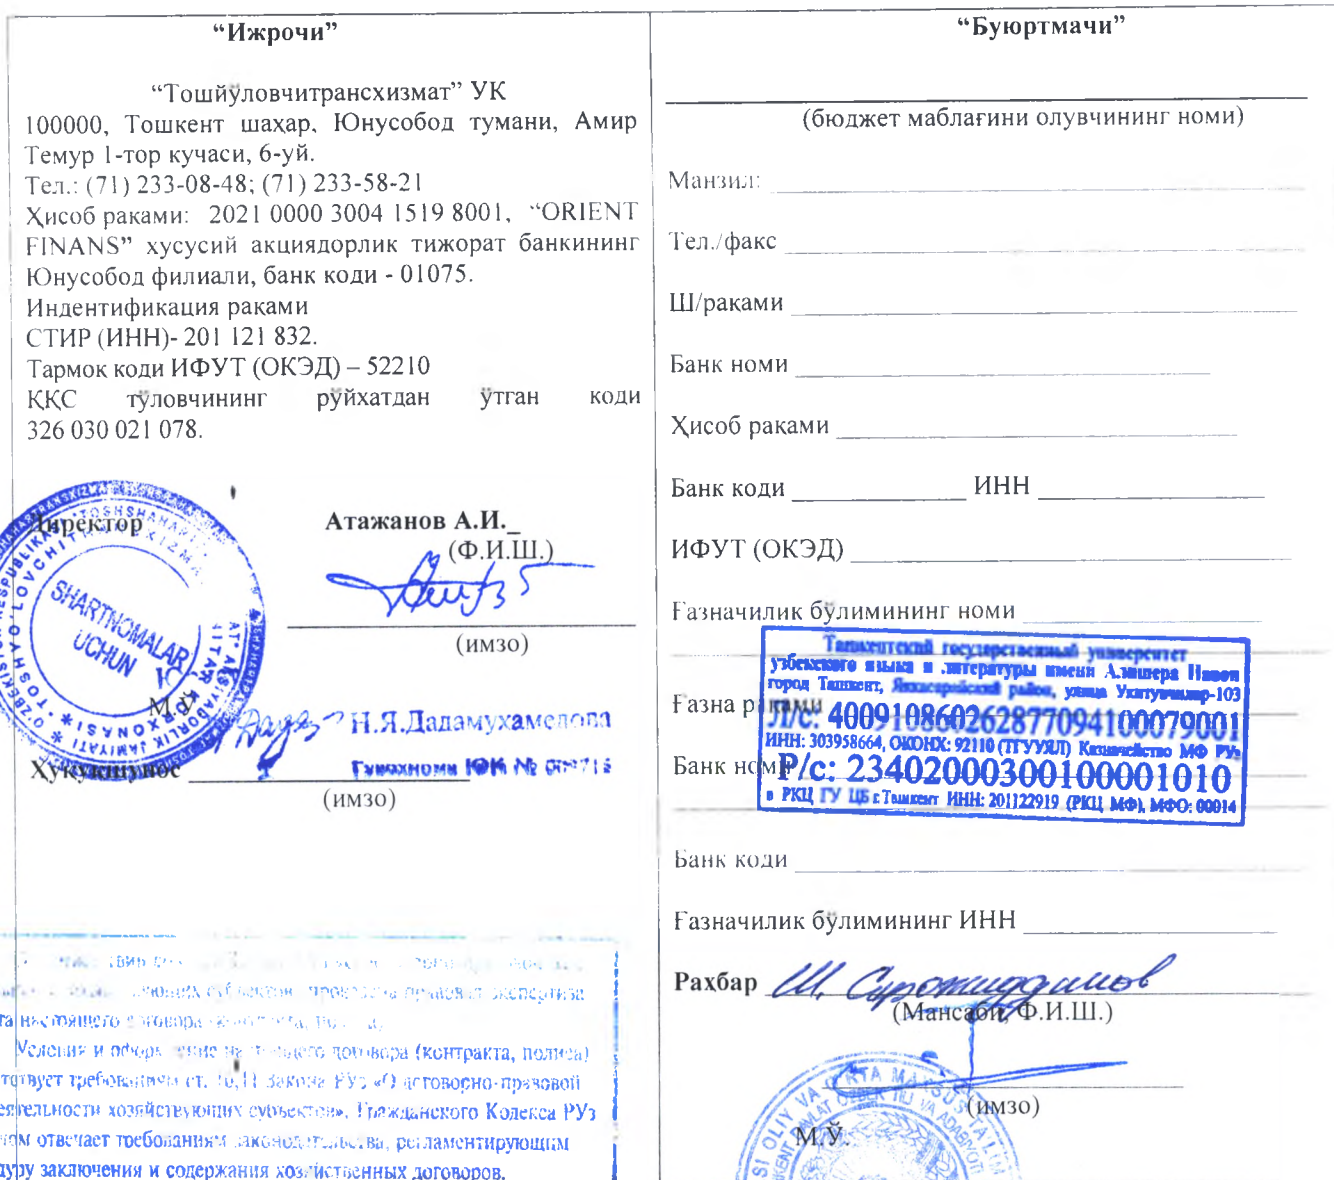 “Ижрочи”
“Тошйўловчитрансхизмат” УК
100000, Тошкент шаҳар, Юнусобод тумани, Амир
Темур 1-тор кучаси, 6-уй.
Тел.: (71) 233-08-48; (71) 233-58-21
Ҳисоб рақами: 2021 0000 3004 1519 8001, “ORIENT
FINANS” хусусий акциядорлик тижорат банкининг
Юнусобод филиали, банк коди - 01075.
Индентификация рақами
СТИР (ИНН)- 201 121 832.
Тармок коди ИФУТ (ОКЭД) – 52210
ҚҚС тўловчининг рўйхатдан ўтган коди
326 030 021 078.
Директор Атажанов А.И._
(Ф.И.Ш.)
(имзо)
SHARTNOMALAR
UCHUN
М.Ў.
Н.Я.Дадамухамедова
Ҳуқуқшунос
Гувохнома ЮК №
(имзо)
экспертиза
настоящего договора
Условия и договора (контракта, полиса)
требованиям ст. 10,11 Закона РУз «О договорно-правовой
хозяйствующих субъектов», Гражданского Кодекса РУз
отвечает требованиям законодательства, регламентирующим
заключения и содержания хозяйственных договоров.
“Буюртмачи”
(бюджет маблағини олувчининг номи)
Манзил:
Тел./факс
Ш/рақами
Банк номи
Ҳисоб рақами
Банк коди ИНН
ИФУТ (ОКЭД)
Ғазначилик бўлимининг номи
Ташкентский государственный университет
узбекского языка и литературы имени Алишера Навои
город Ташкент, Яккасарайский район, улица Укитувчилар-103
Ғазна рақами
Л/с: 400910860262877094100079001
ИНН: 303958664, ОКОНХ: 92110 (ТГУУЯЛ) Казначейство МФ РУз
Банк номи
Р/с: 23402000300100001010
в РКЦ ГУ ЦБ г.Ташкент ИНН: 201122919 (РКЦ МФ), МФО: 00014
Банк коди
Ғазначилик бўлимининг ИНН
Раҳбар Ш. Сирожиддинов
(Мансаби, Ф.И.Ш.)
(имзо)
М.Ў.